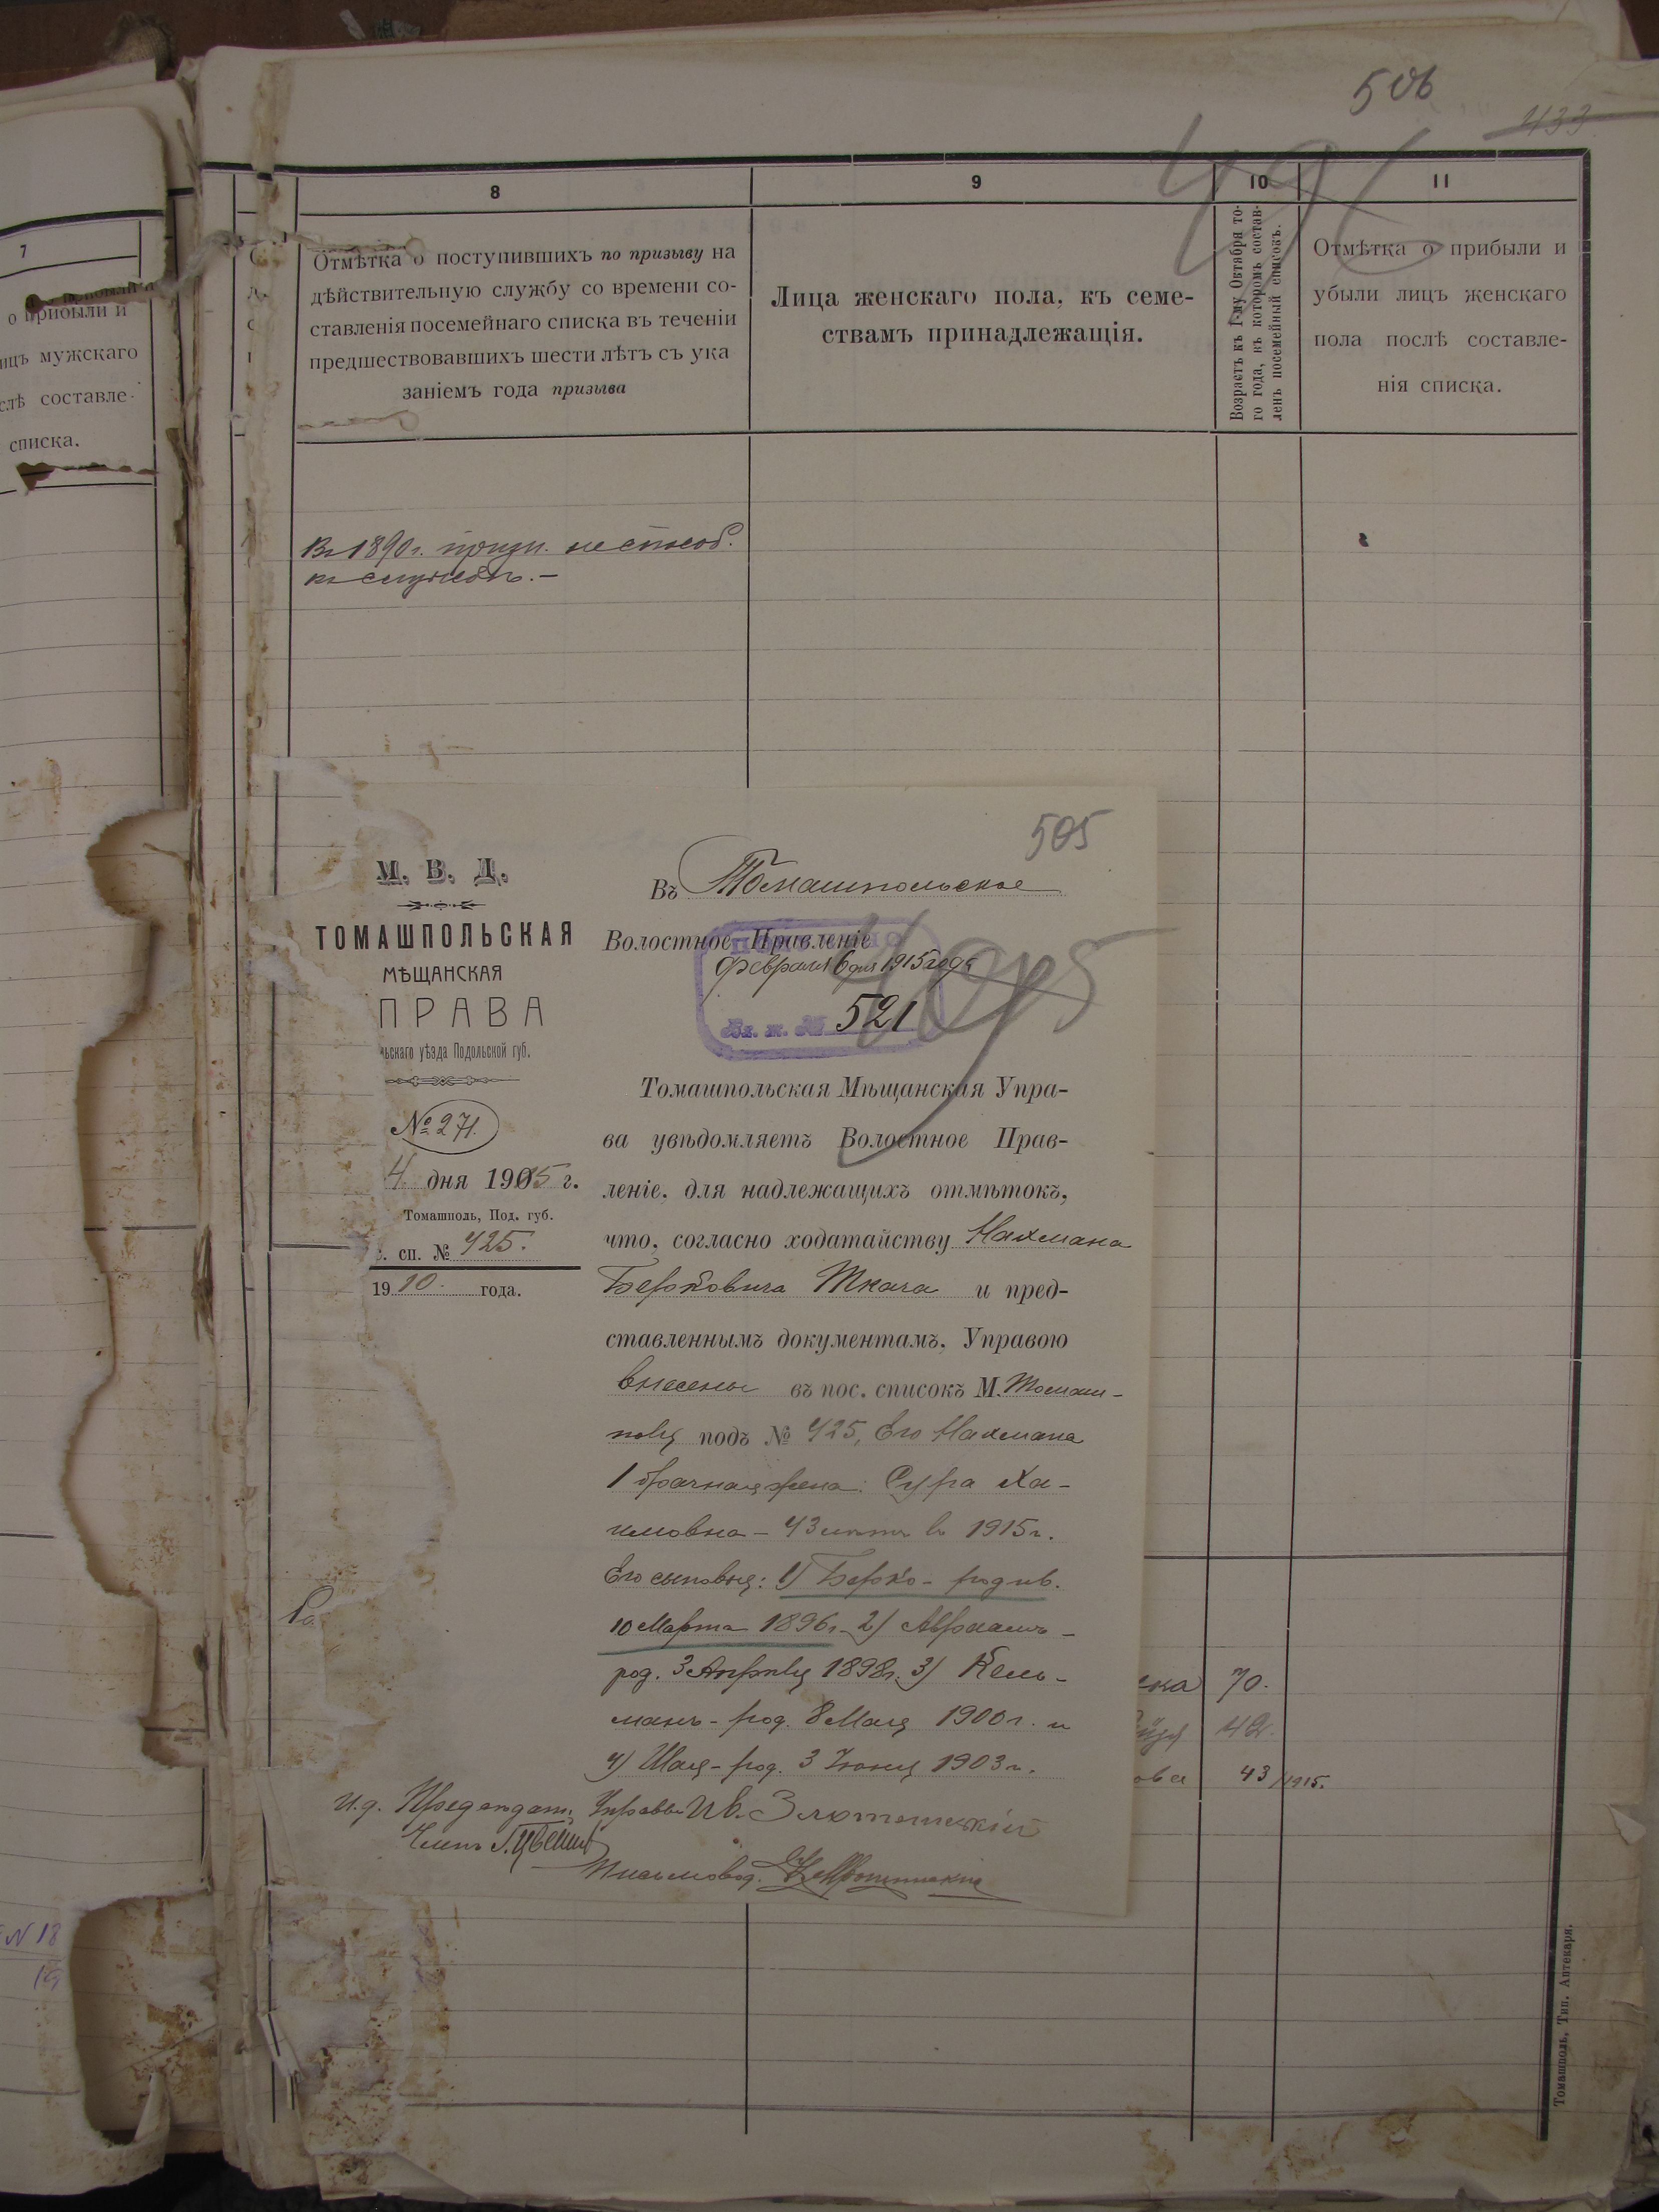 506
433
7
о прибыли и
ицъ мужскаго
слѣ составле-
списка.
8
9
10
11
Отмѣтка о поступившихъ по призыву на
дѣйствительную службу со времени со-
ставленія посемейнаго списка въ теченіи
предшествовавшихъ шести лѣтъ съ ука
заніемъ года призыва
Лица женскаго пола, къ семе-
ствамъ принадлежащія.
Возрастъ къ 1-му Октября то-
го года, къ которомъ состав-
ленъ посемейный списокъ.
Отмѣтка о прибыли и
убыли лицъ женскаго
пола послѣ составле-
нія списка.
Въ 1890 г. призн. неспособ.
къ службѣ. –
505
М. В. Д.
ТОМАШПОЛЬСКАЯ
МѢЩАНСКАЯ
ПРАВА
льскаго уѣзда Подольской губ.
№ 271.
4 дня 1915 г.
Томашполь, Под. губ.
. сп. № 425.
1910 года.
Въ Томашпольское
Волостное Правленіе
Февраля 6 дня 1915 года
Вх. ж. № 521
Томашпольская Мѣщанская Упра-
ва увѣдомляетъ Волостное Прав-
леніе, для надлежащихъ отмѣтокъ,
что, согласно ходатайству Нахмана
Берковича Ткача и пред-
ставленнымъ документамъ, Управою
внесены въ пос. списокъ М. Томаш-
поля подъ № 425, Его Нахмана
1 брачная жена: Сура Ха-
имовна – 43 лѣтъ въ 1915 г.
Его сыновья: 1) Берко – родив.
10 Марта 1896 г. 2) Аврамъ –
род. 3 Апрѣля 1898 г. 3) Кель-
манъ – род. 8 Мая 1900 г. и
4) Шая – род. 3 Іюня 1903 г.
И. д. Предсѣдат. Управы Ив.
Членъ
Письмовод.
70.
42.
ова 43/1915.
N 18
Томашполь, Тип. Аптекаря.